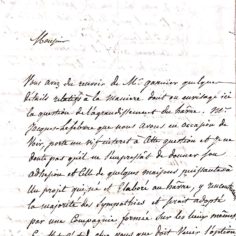 Monsieur
Vous avez du recevoir de Mr. garnier quelques
détails relatifs à la manière dont on envisage ici
la question de l'agrandissement du hâvre. Mr.
Jacques Lefebvre que nous avons eu occasion de
voir, porte un vif intérêt à cette question et je ne
doute pas qu'il ne s'empresse de donner son
adhésion et celle de quelques maisons puissantes à
un projet qui, né et élaboré au hâvre, y réunit
la majorité des sympathies et serait adopté
par une Compagnie formée sur les lieux mêmes
que vous que doit l'option